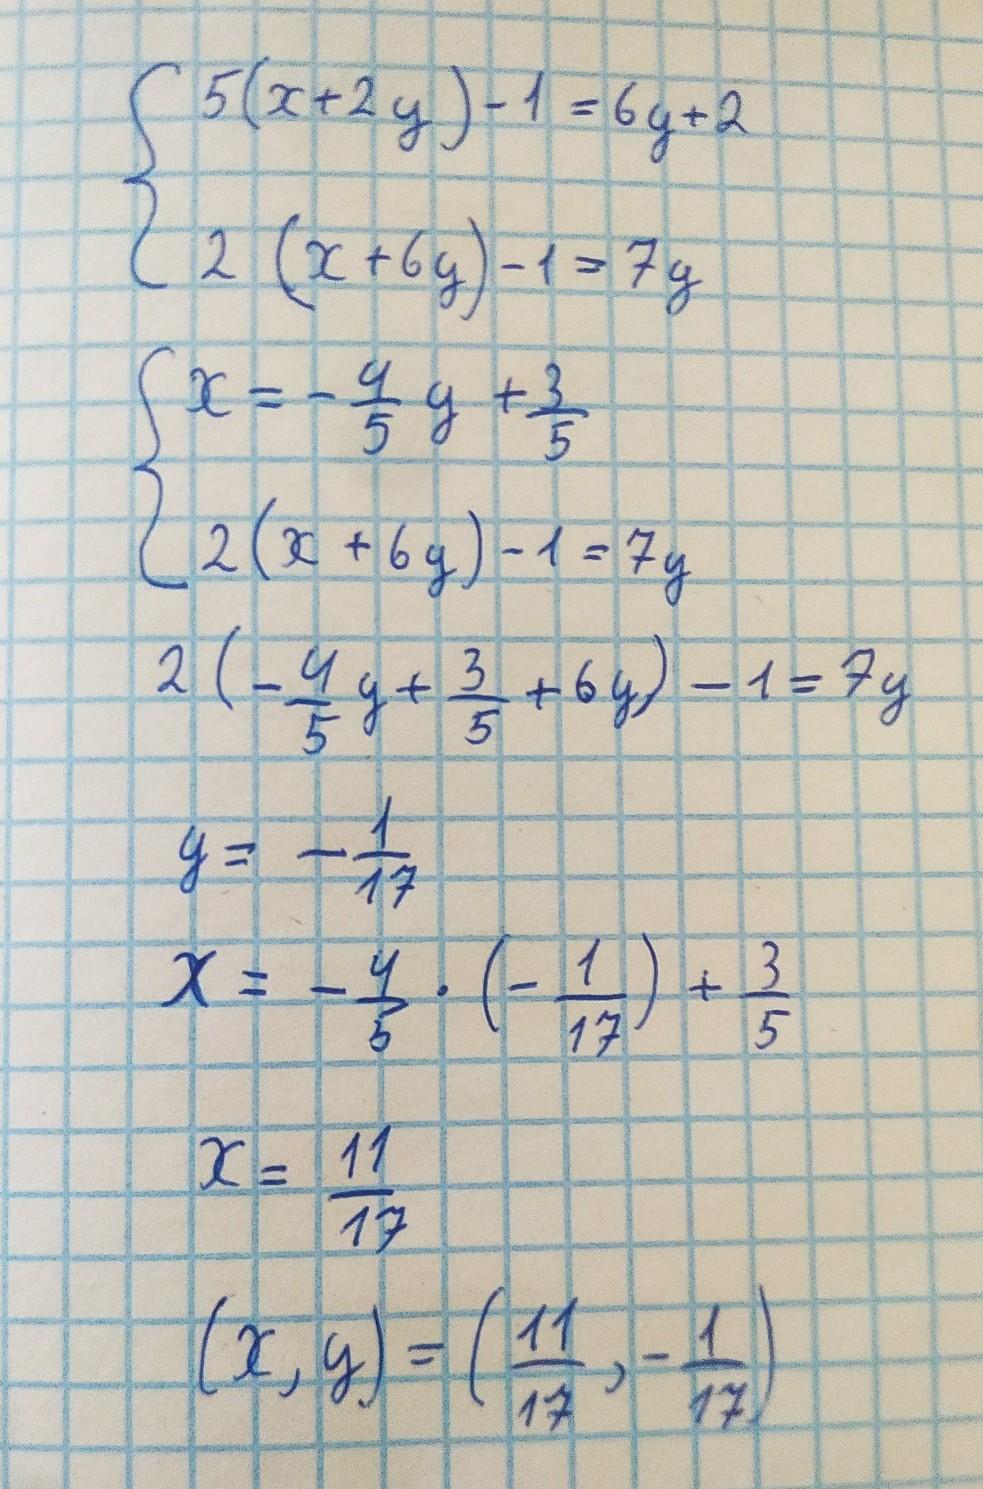 5(x+2y)-1=6y+2
2(x+6y)-1=7y
x=-4/5 y+3/5
2(x+6y)-1=7y
2(-4/5 y+3/5+6y)-1=7y
y=-1/17
x=-4/5·(-1/17)+3/5
x=11/17
(x,y)=(11/17,-1/17)